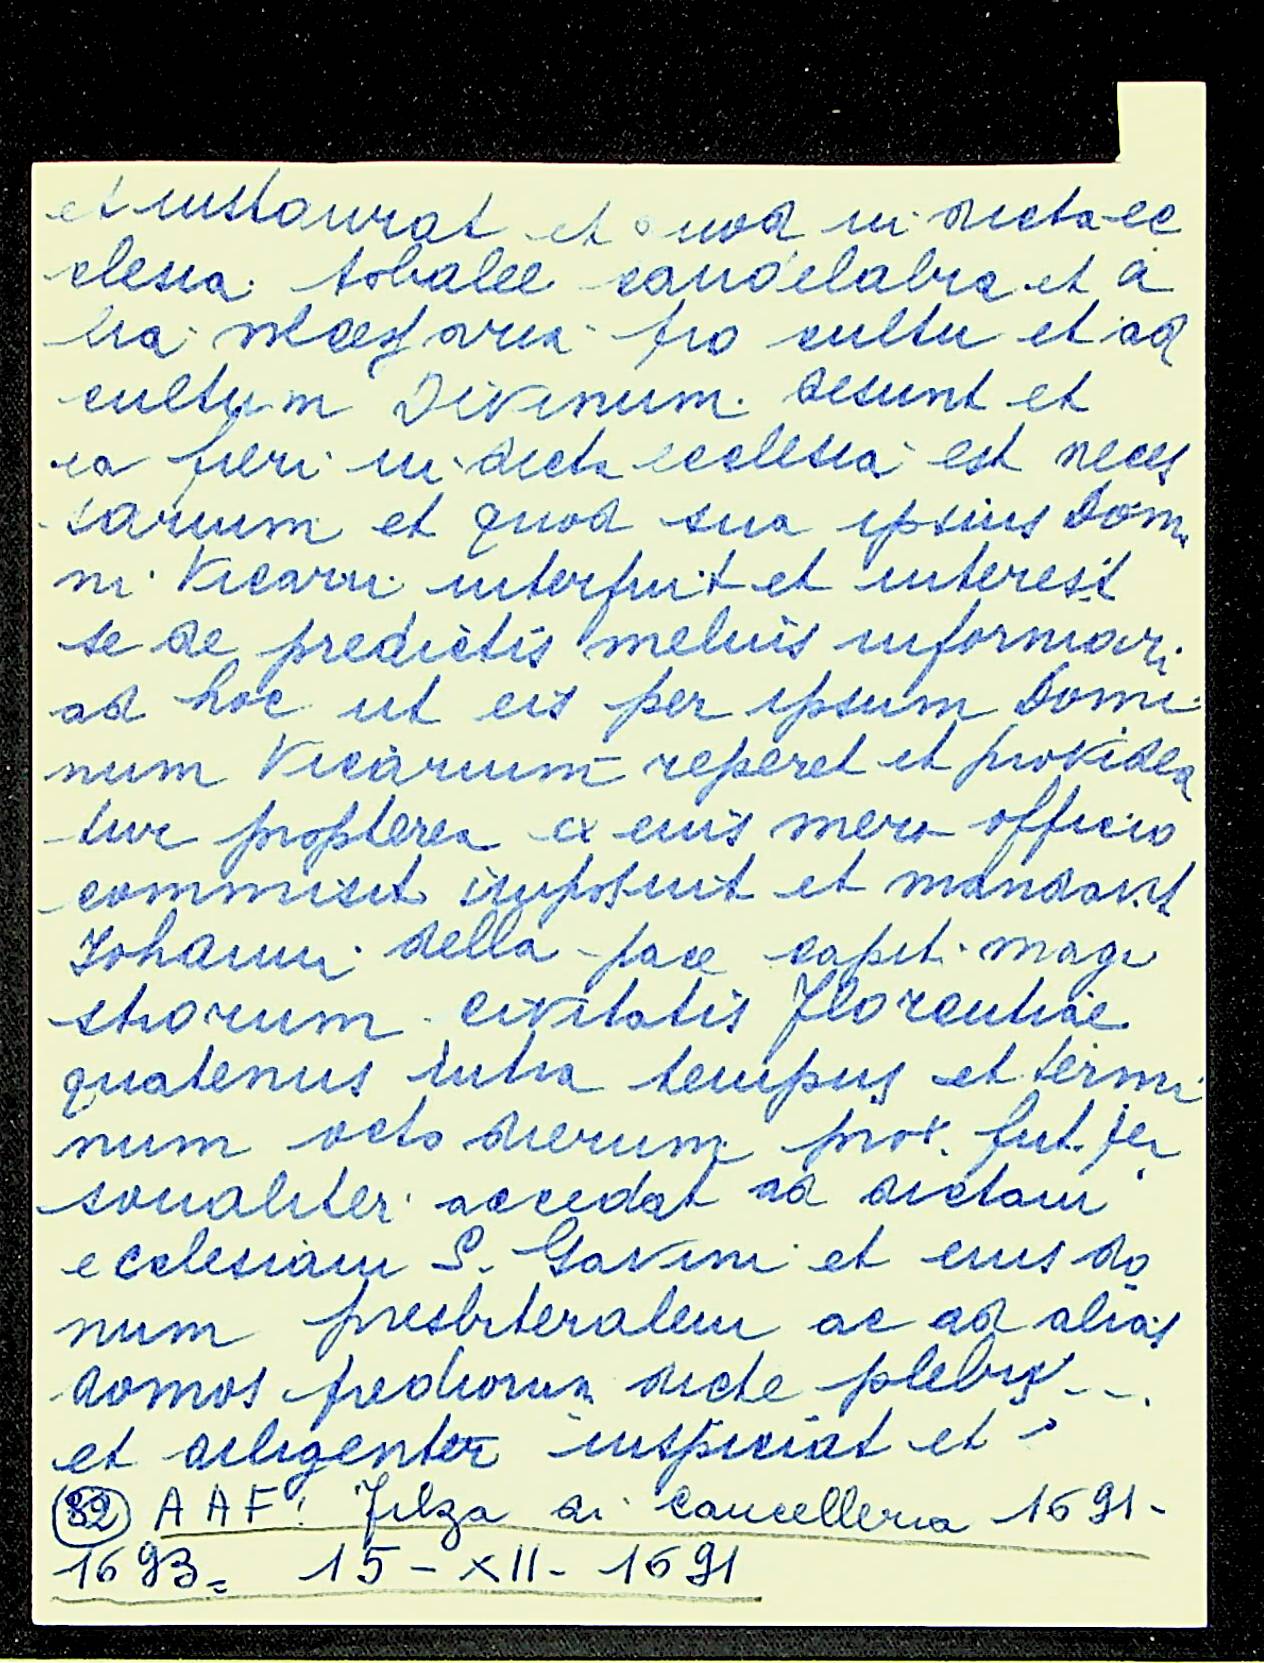 et instaurat et quod in dicta ec
clesia tobalee candelabra et a
lia necessaria pro cultu et ad
cultum Divinum desunt et
ea fieri in dicta ecclesia est neces
sarium et quod sua ipsius Domi
ni Vicarii interfuit et interest
se de predictis melius informari
ad hoc ut eis per ipsum Domi
num Vicarium reperet et providea
tur propterea ex eius mero officio
commisit imposuit et mandavit
Iohanni della face capit. magi
strorum civitatis Florentiae
quatenus intra tempus et termi
num octo dierum prox. fut. per
sonaliter accedat ad dictam
ecclesiam S. Gavini et eius do
num presbiteralem ac ad alias
domos prediorum dicte plebis - - .
et diligenter inspiciat et
(82) AAF: Filza di Cancelleria 1691-
1693= 15-XII-1691